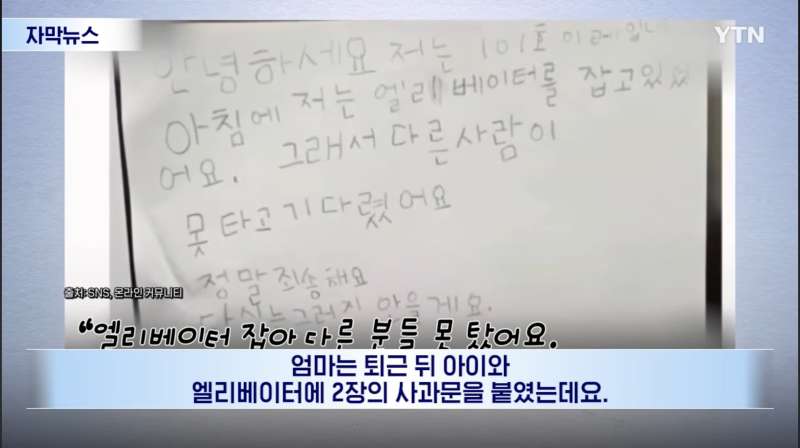 자막뉴스
YTN
안녕하세요 저는 101호
아침에 저는 엘리베이터를 잡고있었
어요. 그래서 다른사람이
못 타고 기다렸어요
정말 죄송해요
출처: SNS, 온라인 커뮤니티
“엘리베이터 잡아 다른 분들 못 탔어요.
엄마는 퇴근 뒤 아이와
엘리베이터에 2장의 사과문을 붙였는데요.